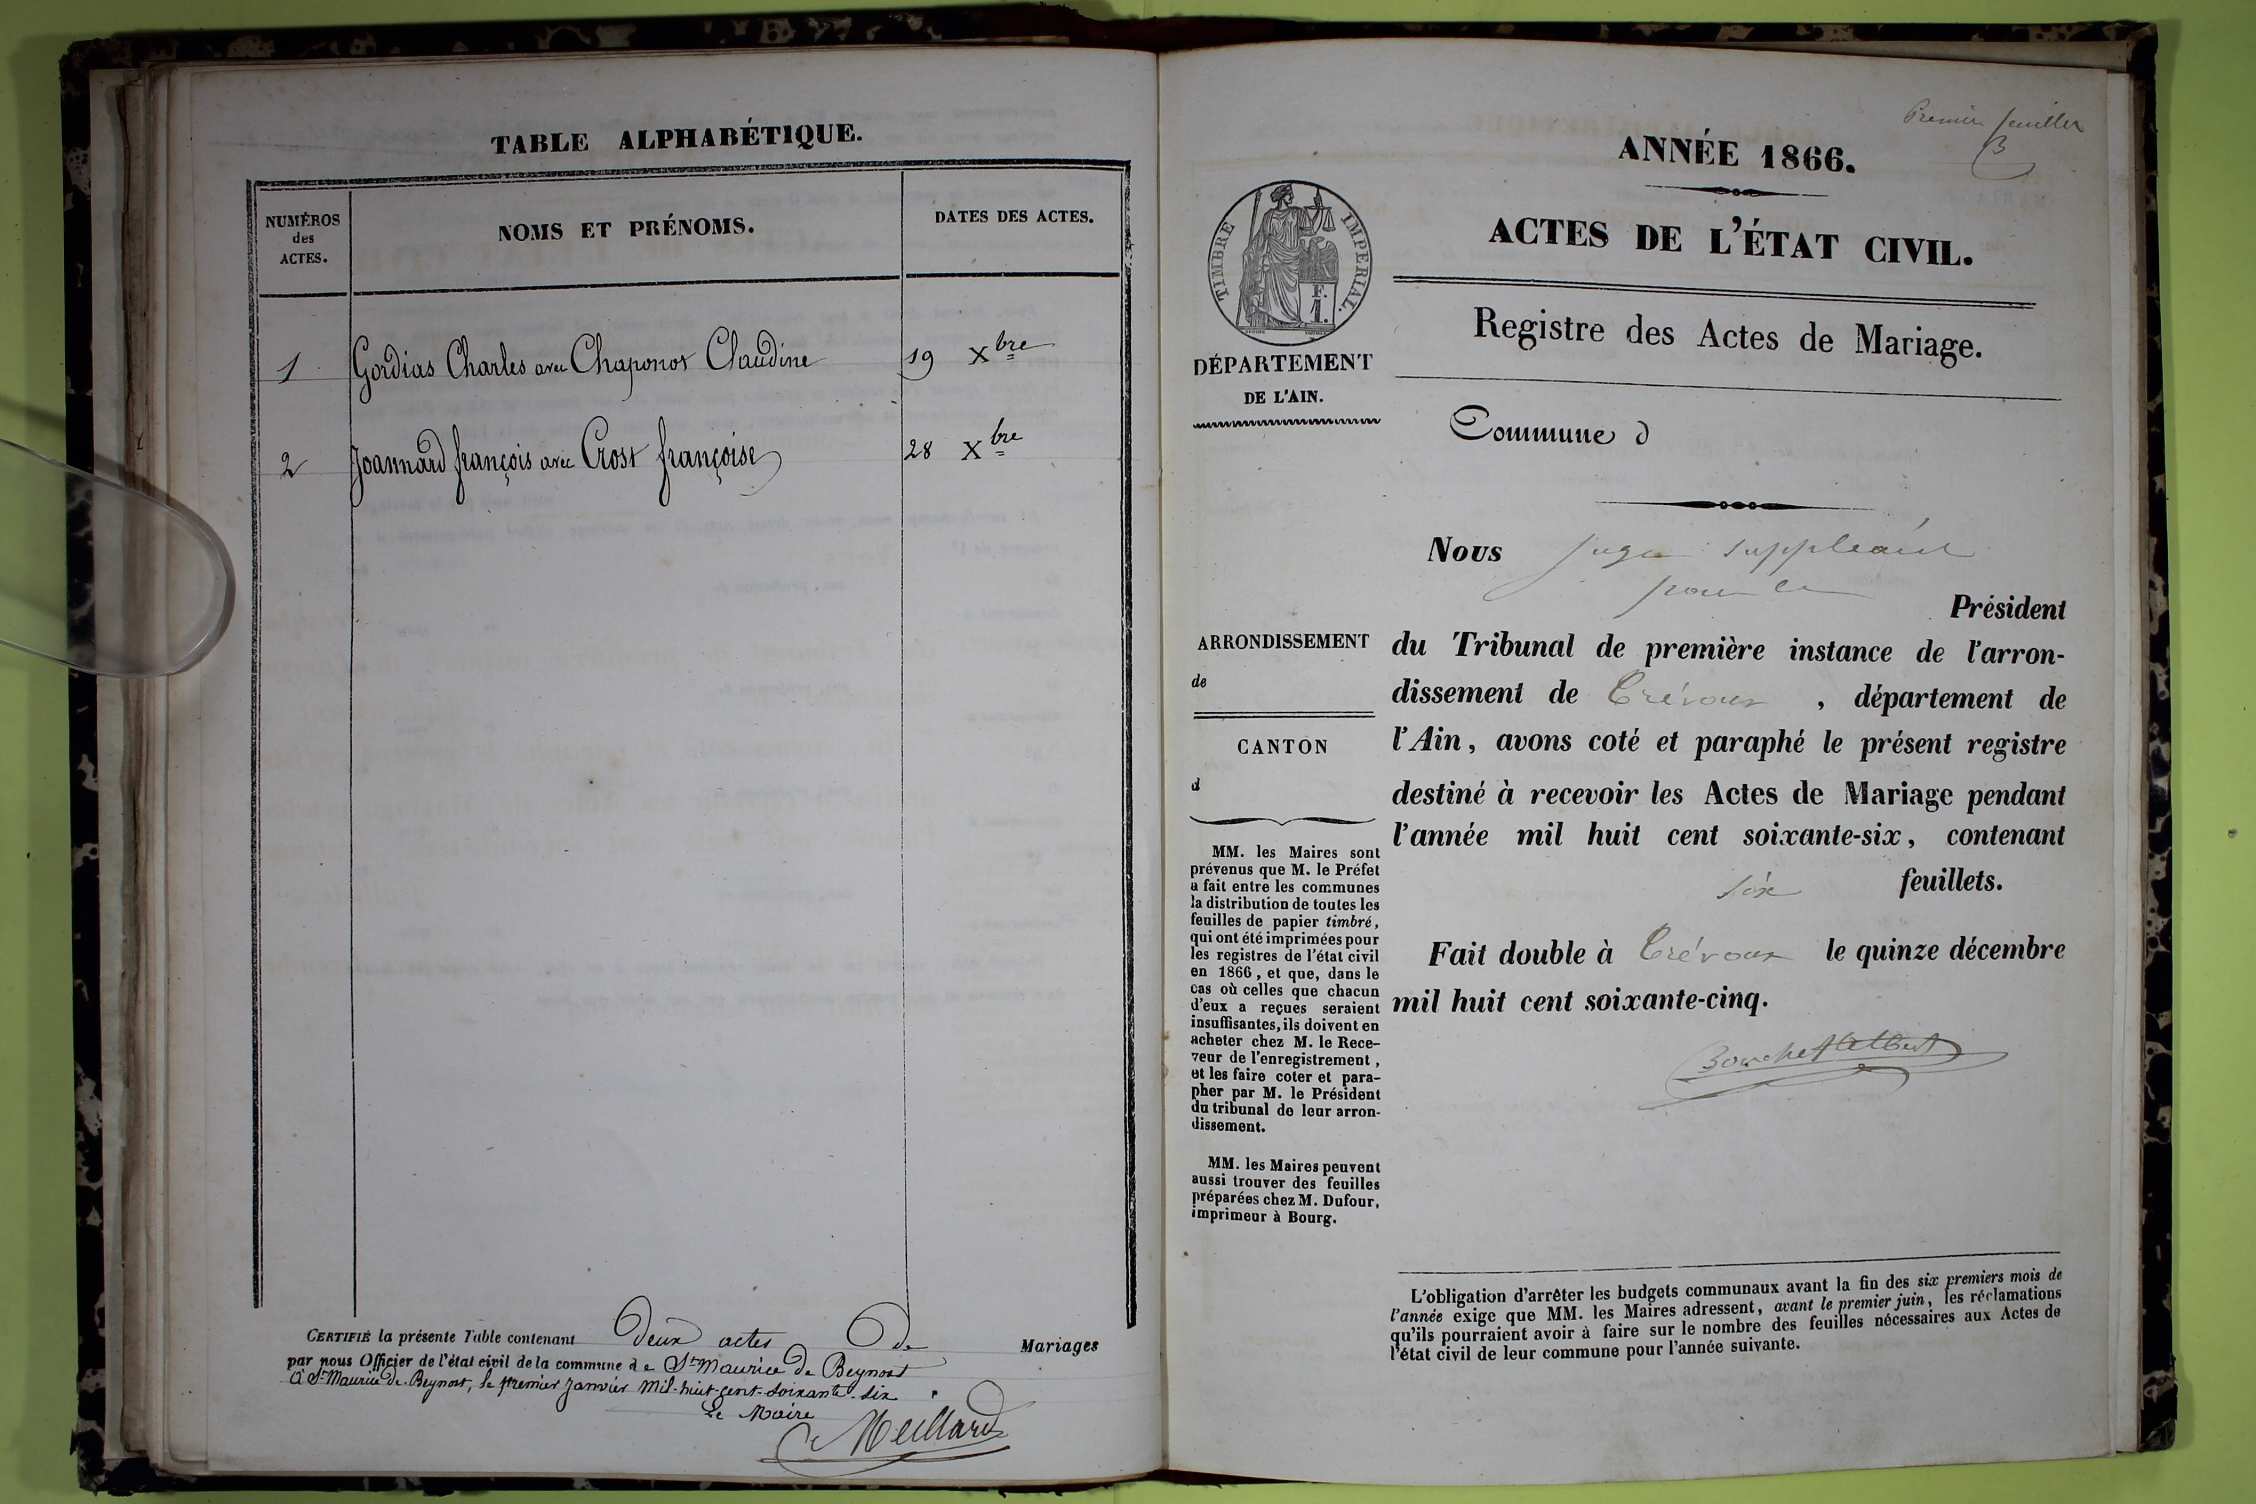 TABLE ALPHABÉTIQUE.
NUMÉROS
des
ACTES.
NOMS ET PRÉNOMS.
DATES DES ACTES.
1 Gordias Charles avec Chaponot Claudine 19 Xbre
2 Joannard françois avec Crost françoise 28 Xbre
CERTIFIÉ la présente Table contenant deux actes De Mariages
par nous Officier de l'état civil de la commune de St Maurice De Beynost
à St Maurice De Beynost, le premier Janvier mil-huit-cent-soixante-six
Le Maire
Meillard
Premier feuillet
B
ANNÉE 1866.
ACTES DE L'ÉTAT CIVIL.
TIMBRE IMPERIAL.
F.
1.
Registre des Actes de Mariage.
DÉPARTEMENT
DE L'AIN.
Commune d
Nous juge suppléant
pour le
Président
du Tribunal de première instance de l'arron-
dissement de Trévoux , département de
l'Ain, avons coté et paraphé le présent registre
destiné à recevoir les Actes de Mariage pendant
l'année mil huit cent soixante-six, contenant
six feuillets.
Fait double à Trévoux le quinze décembre
mil huit cent soixante-cinq.
ARRONDISSEMENT
de
CANTON
d
MM. les Maires sont
prévenus que M. le Préfet
a fait entre les communes
la distribution de toutes les
feuilles de papier timbré,
qui ont été imprimées pour
les registres de l'état civil
en 1866, et que, dans le
cas où celles que chacun
d'eux a reçues seraient
insuffisantes, ils doivent en
acheter chez M. le Rece-
veur de l'enregistrement,
et les faire coter et para-
pher par M. le Président
du tribunal de leur arron-
dissement.
MM. les Maires peuvent
aussi trouver des feuilles
préparées chez M. Dufour,
imprimeur à Bourg.
L'obligation d'arrêter les budgets communaux avant la fin des six premiers mois de
l'année exige que MM. les Maires adressent, avant le premier juin, les réclamations
qu'ils pourraient avoir à faire sur le nombre des feuilles nécessaires aux Actes de
l'état civil de leur commune pour l'année suivante.